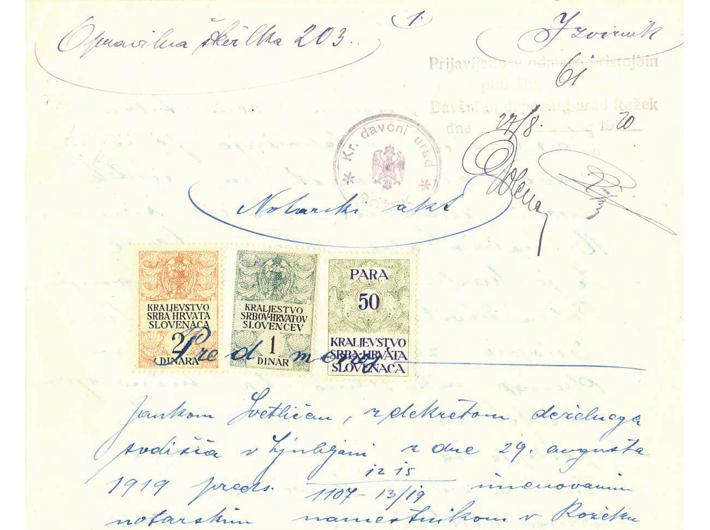 Opravilna številka 203.
1.
Izvirnik
61
Prijavljeno v odmero pristojbin
Davčni in depozitni urad Rožek
dne 27/8 20
Kr. davčni urad
Notarski akt
KRALJEVSTVO
SRBA HRVATA
SLOVENACA
2
DINARA
KRALJESTVO
SRBOV-HRVATOV
SLOVENCEV
1
DINAR
PARA
50
KRALJEVSTVO
SRBA-HRVATA
SLOVENACA
Pred menoj
Jankom Svetličem, z dekretom deželnega
sodišča v Ljubljani z dne 29. avgusta
1919 preds. 12 15
1107-13/19 imenovanim
notarskim namestnikom v Rožeku